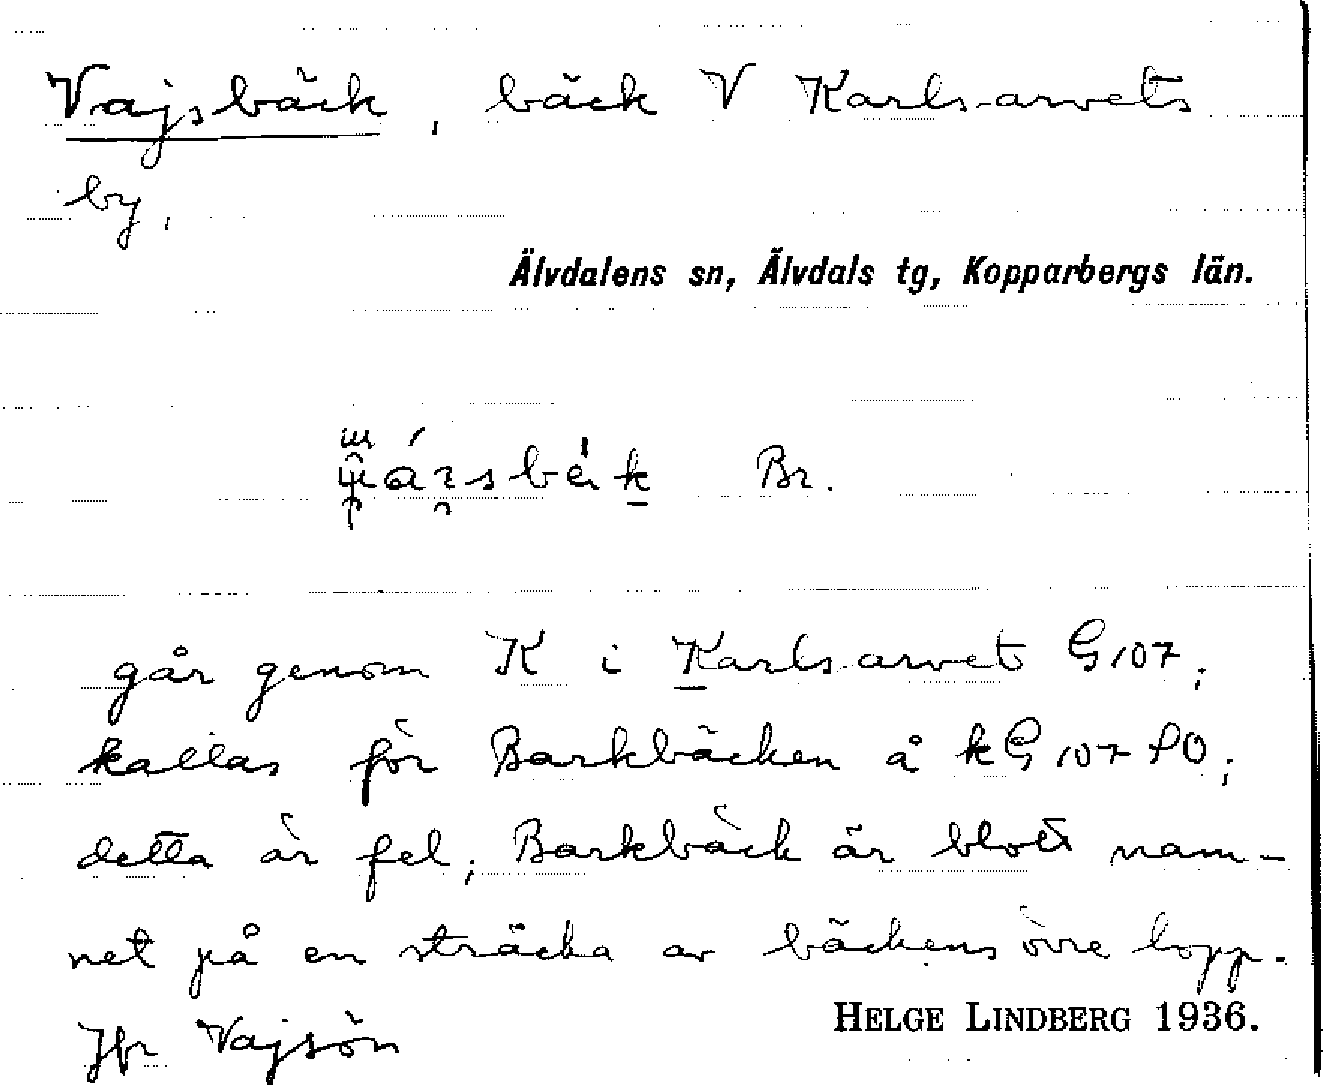 Vajsbäck, bäck V Karlsarvets
by,
Älvdalens sn, Älvdals tg, Kopparbergs län.
Br.
går genom K i Karlsarvet G107;
kallas för Barkbäcken å kG107 PO;
detta är fel; Barkbäck är blott nam-
net på en sträcka av bäckens övre lopp.
Jfr Vajsön
HELGE LINDBERG 1936.